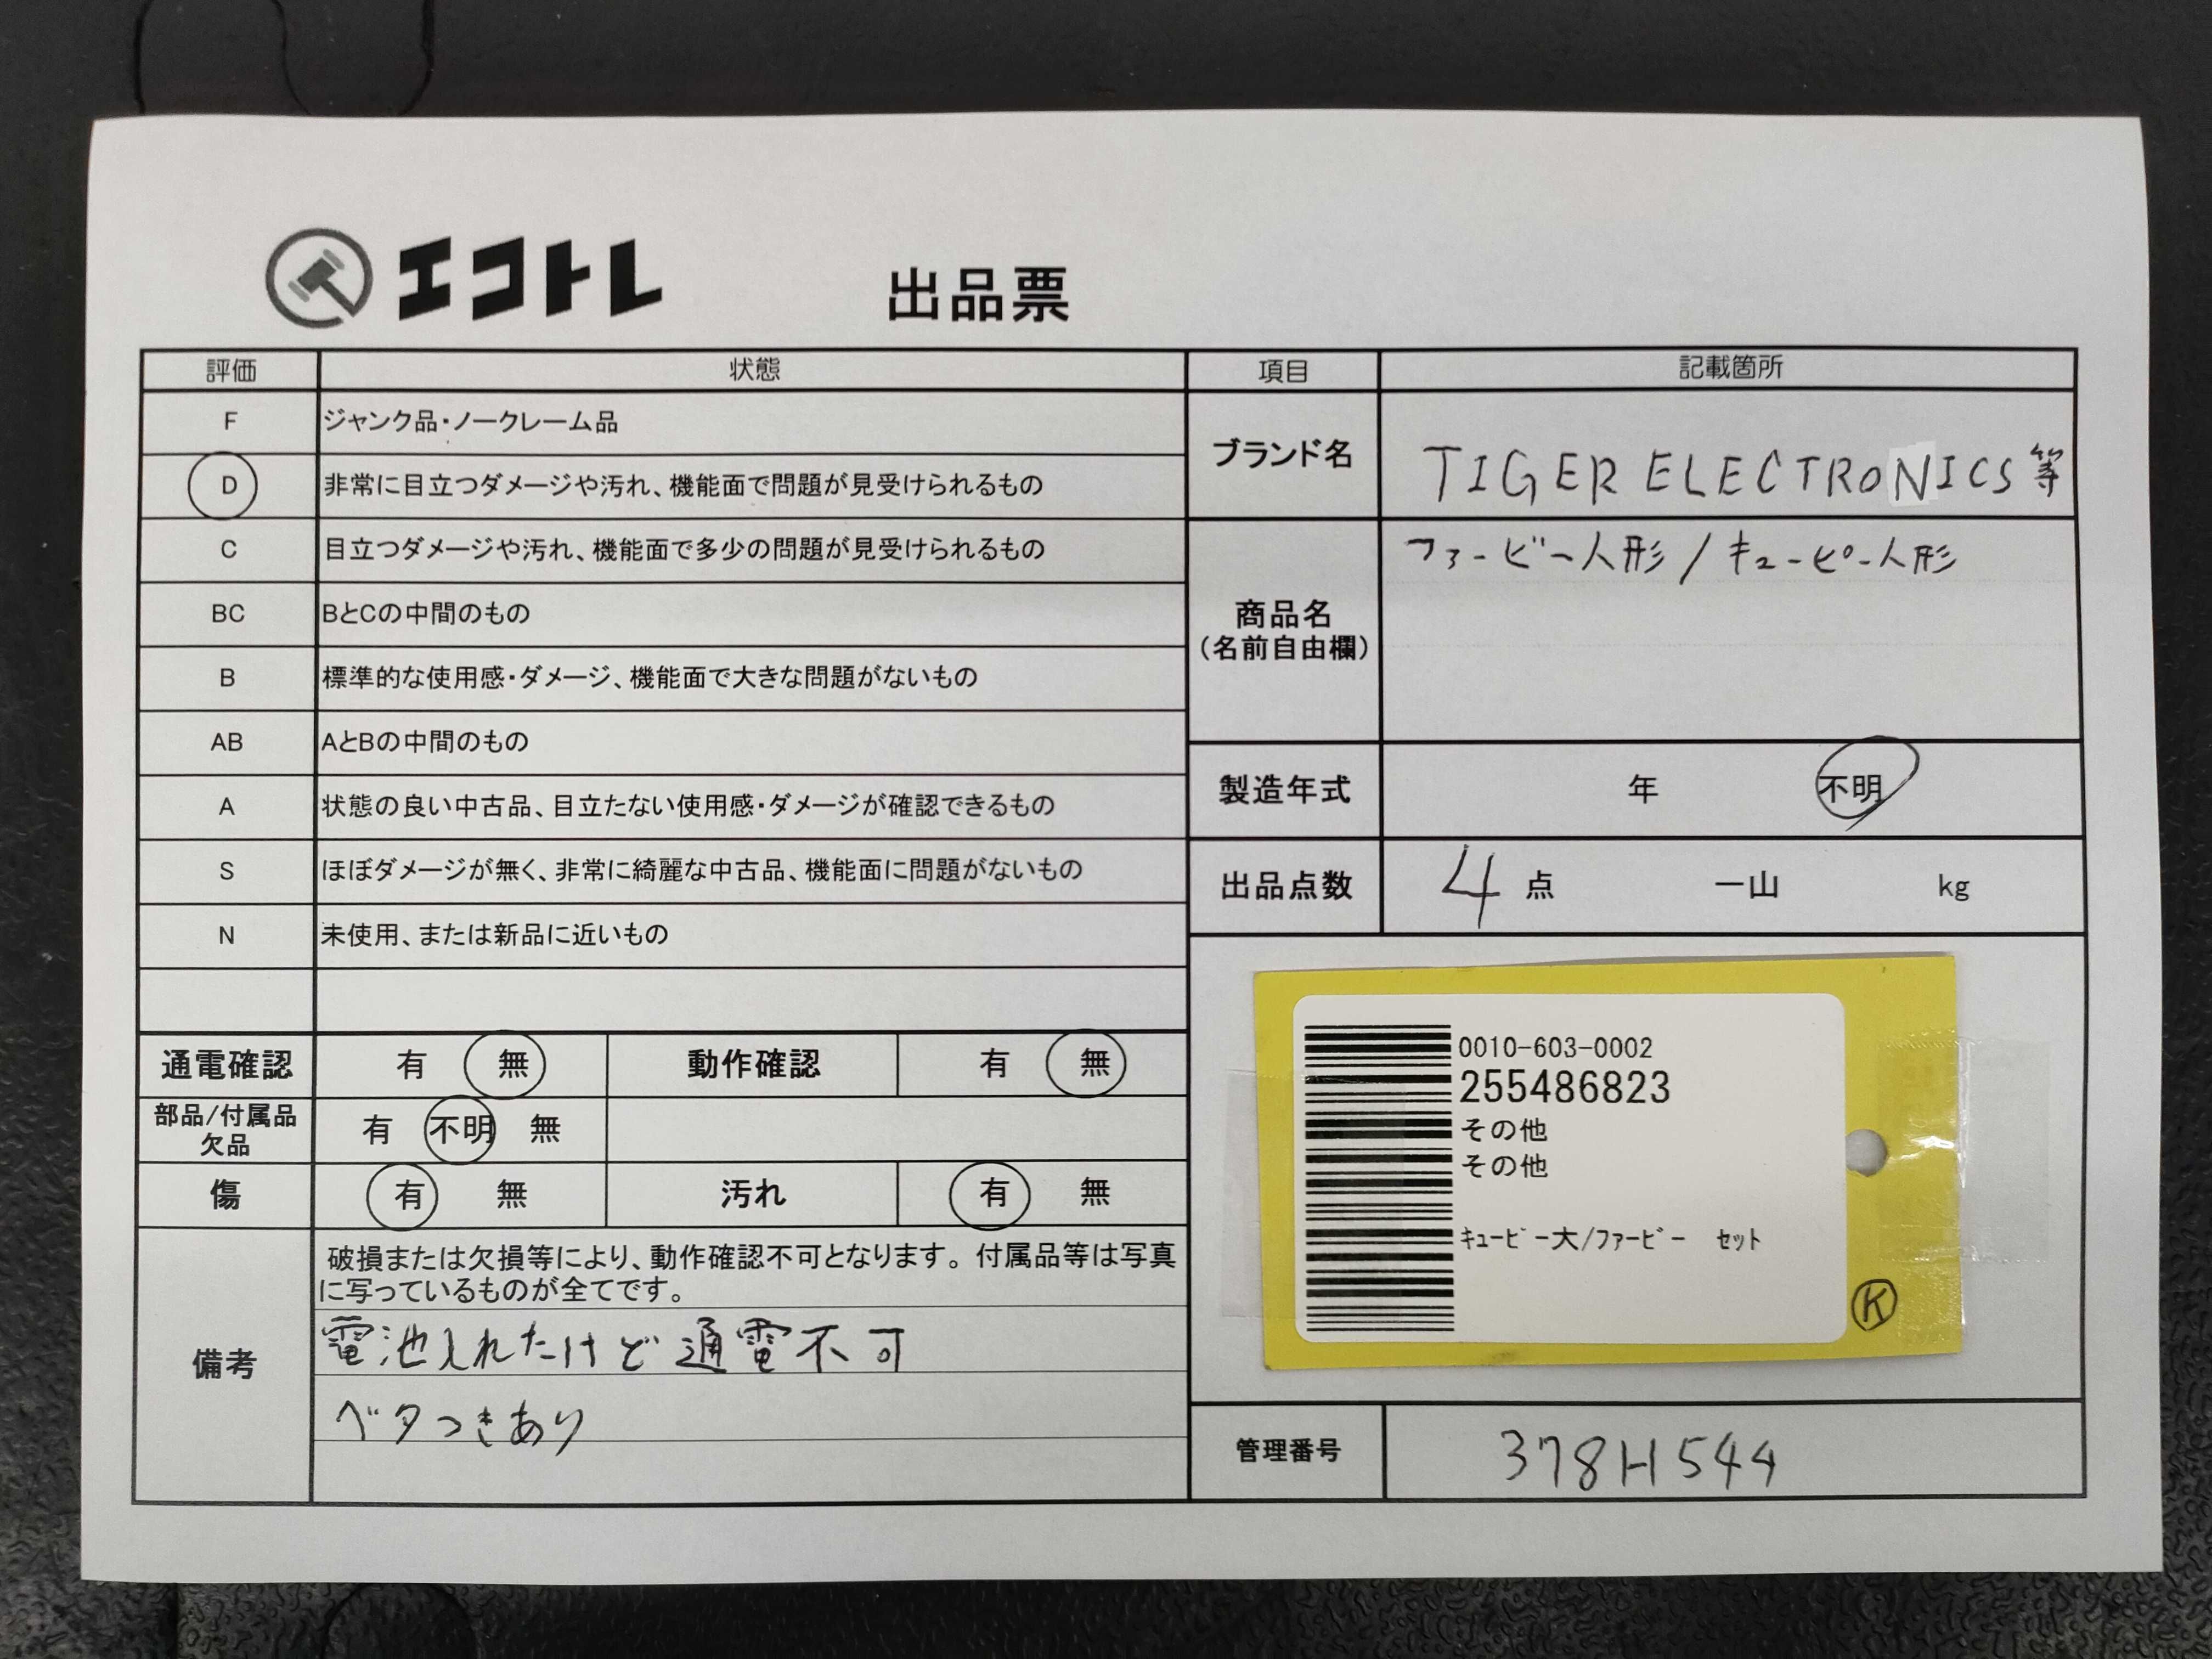 エコトレ
出品票
評価 状態
F ジャンク品・ノークレーム品
D 非常に目立つダメージや汚れ、機能面で問題が見受けられるもの
C 目立つダメージや汚れ、機能面で多少の問題が見受けられるもの
BC BとCの中間のもの
B 標準的な使用感・ダメージ、機能面で大きな問題がないもの
AB AとBの中間のもの
A 状態の良い中古品、目立たない使用感・ダメージが確認できるもの
S ほぼダメージが無く、非常に綺麗な中古品、機能面に問題がないもの
N 未使用、または新品に近いもの
通電確認 有 無 動作確認 有 無
部品/付属品
欠品 有 不明 無
傷 有 無 汚れ 有 無
備考
破損または欠損等により、動作確認不可となります。付属品等は写真
に写っているものが全てです。
電池入れたけど通電不可
ベタつきあり
項目 記載箇所
ブランド名 TIGER ELECTRONICS等
商品名
(名前自由欄)
ファービー人形/キューピー人形
製造年式 年 不明
出品点数 4 点 一山 kg
0010-603-0002
255486823
その他
その他
ｷｭｰﾋﾞｰ大/ﾌｧｰﾋﾞｰ ｾｯﾄ
K
管理番号 378H544